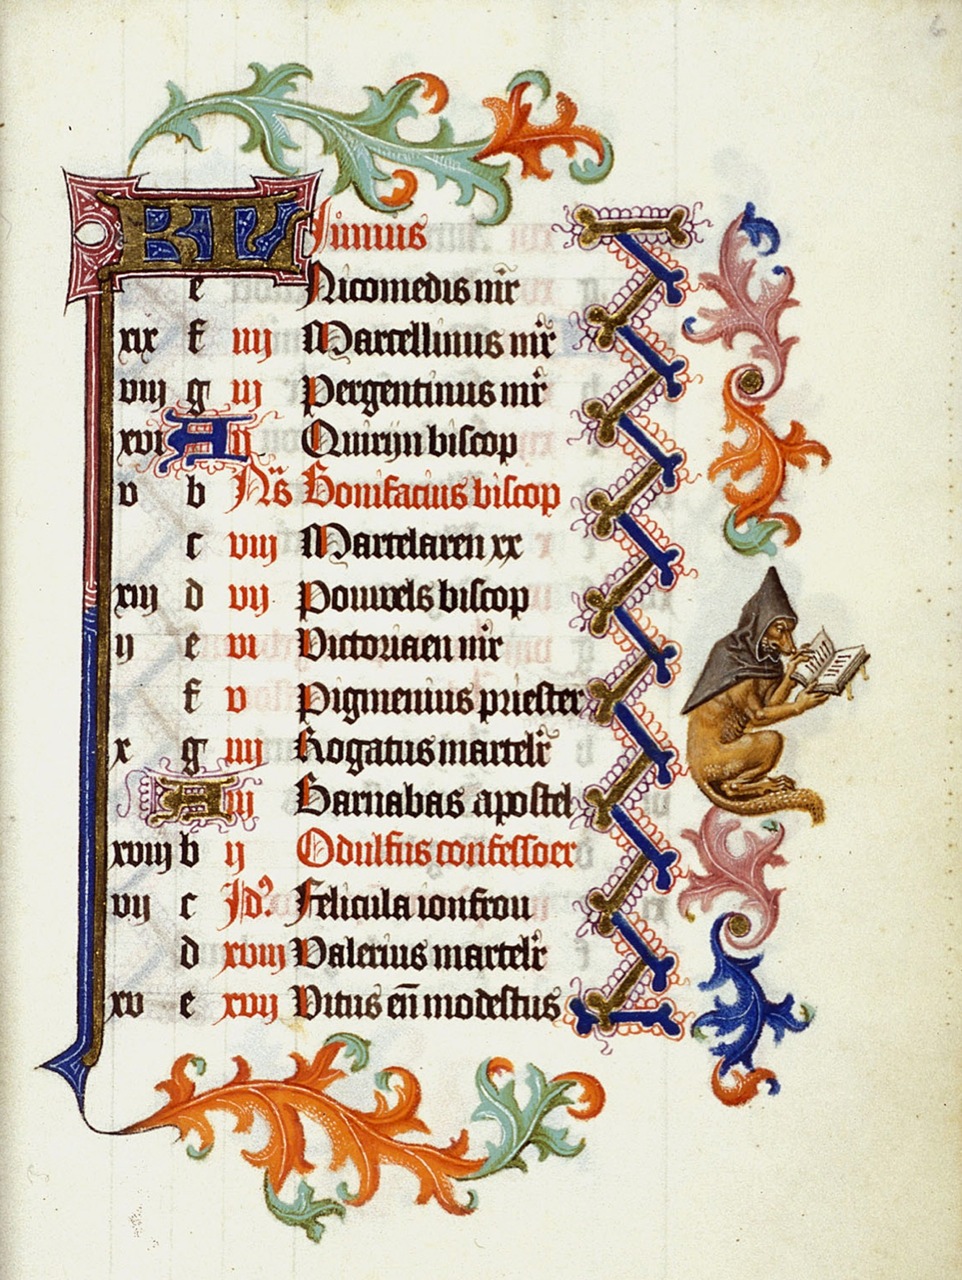 KL Junius
e Nicomedis mr̄
xix f iiij Marcellinus mr̄
viij g iij Pergentinus mr̄
xvi A ij Quirijn biscop
v b Ns̄ Bonifacius biscop
c viij Martelaren xx
xiij d vij Pouwels biscop
ij e vi Victoriaen mr̄
f v Pigmenius priester
x g iiij Rogatus martelr̄
A iij Barnabas apostel
xviij b ij Odulfus confessoer
vij c Jd9. Felicula ionfrou
d xviij Valerius martelr̄
xv e xvij Vitus en̄ modestus